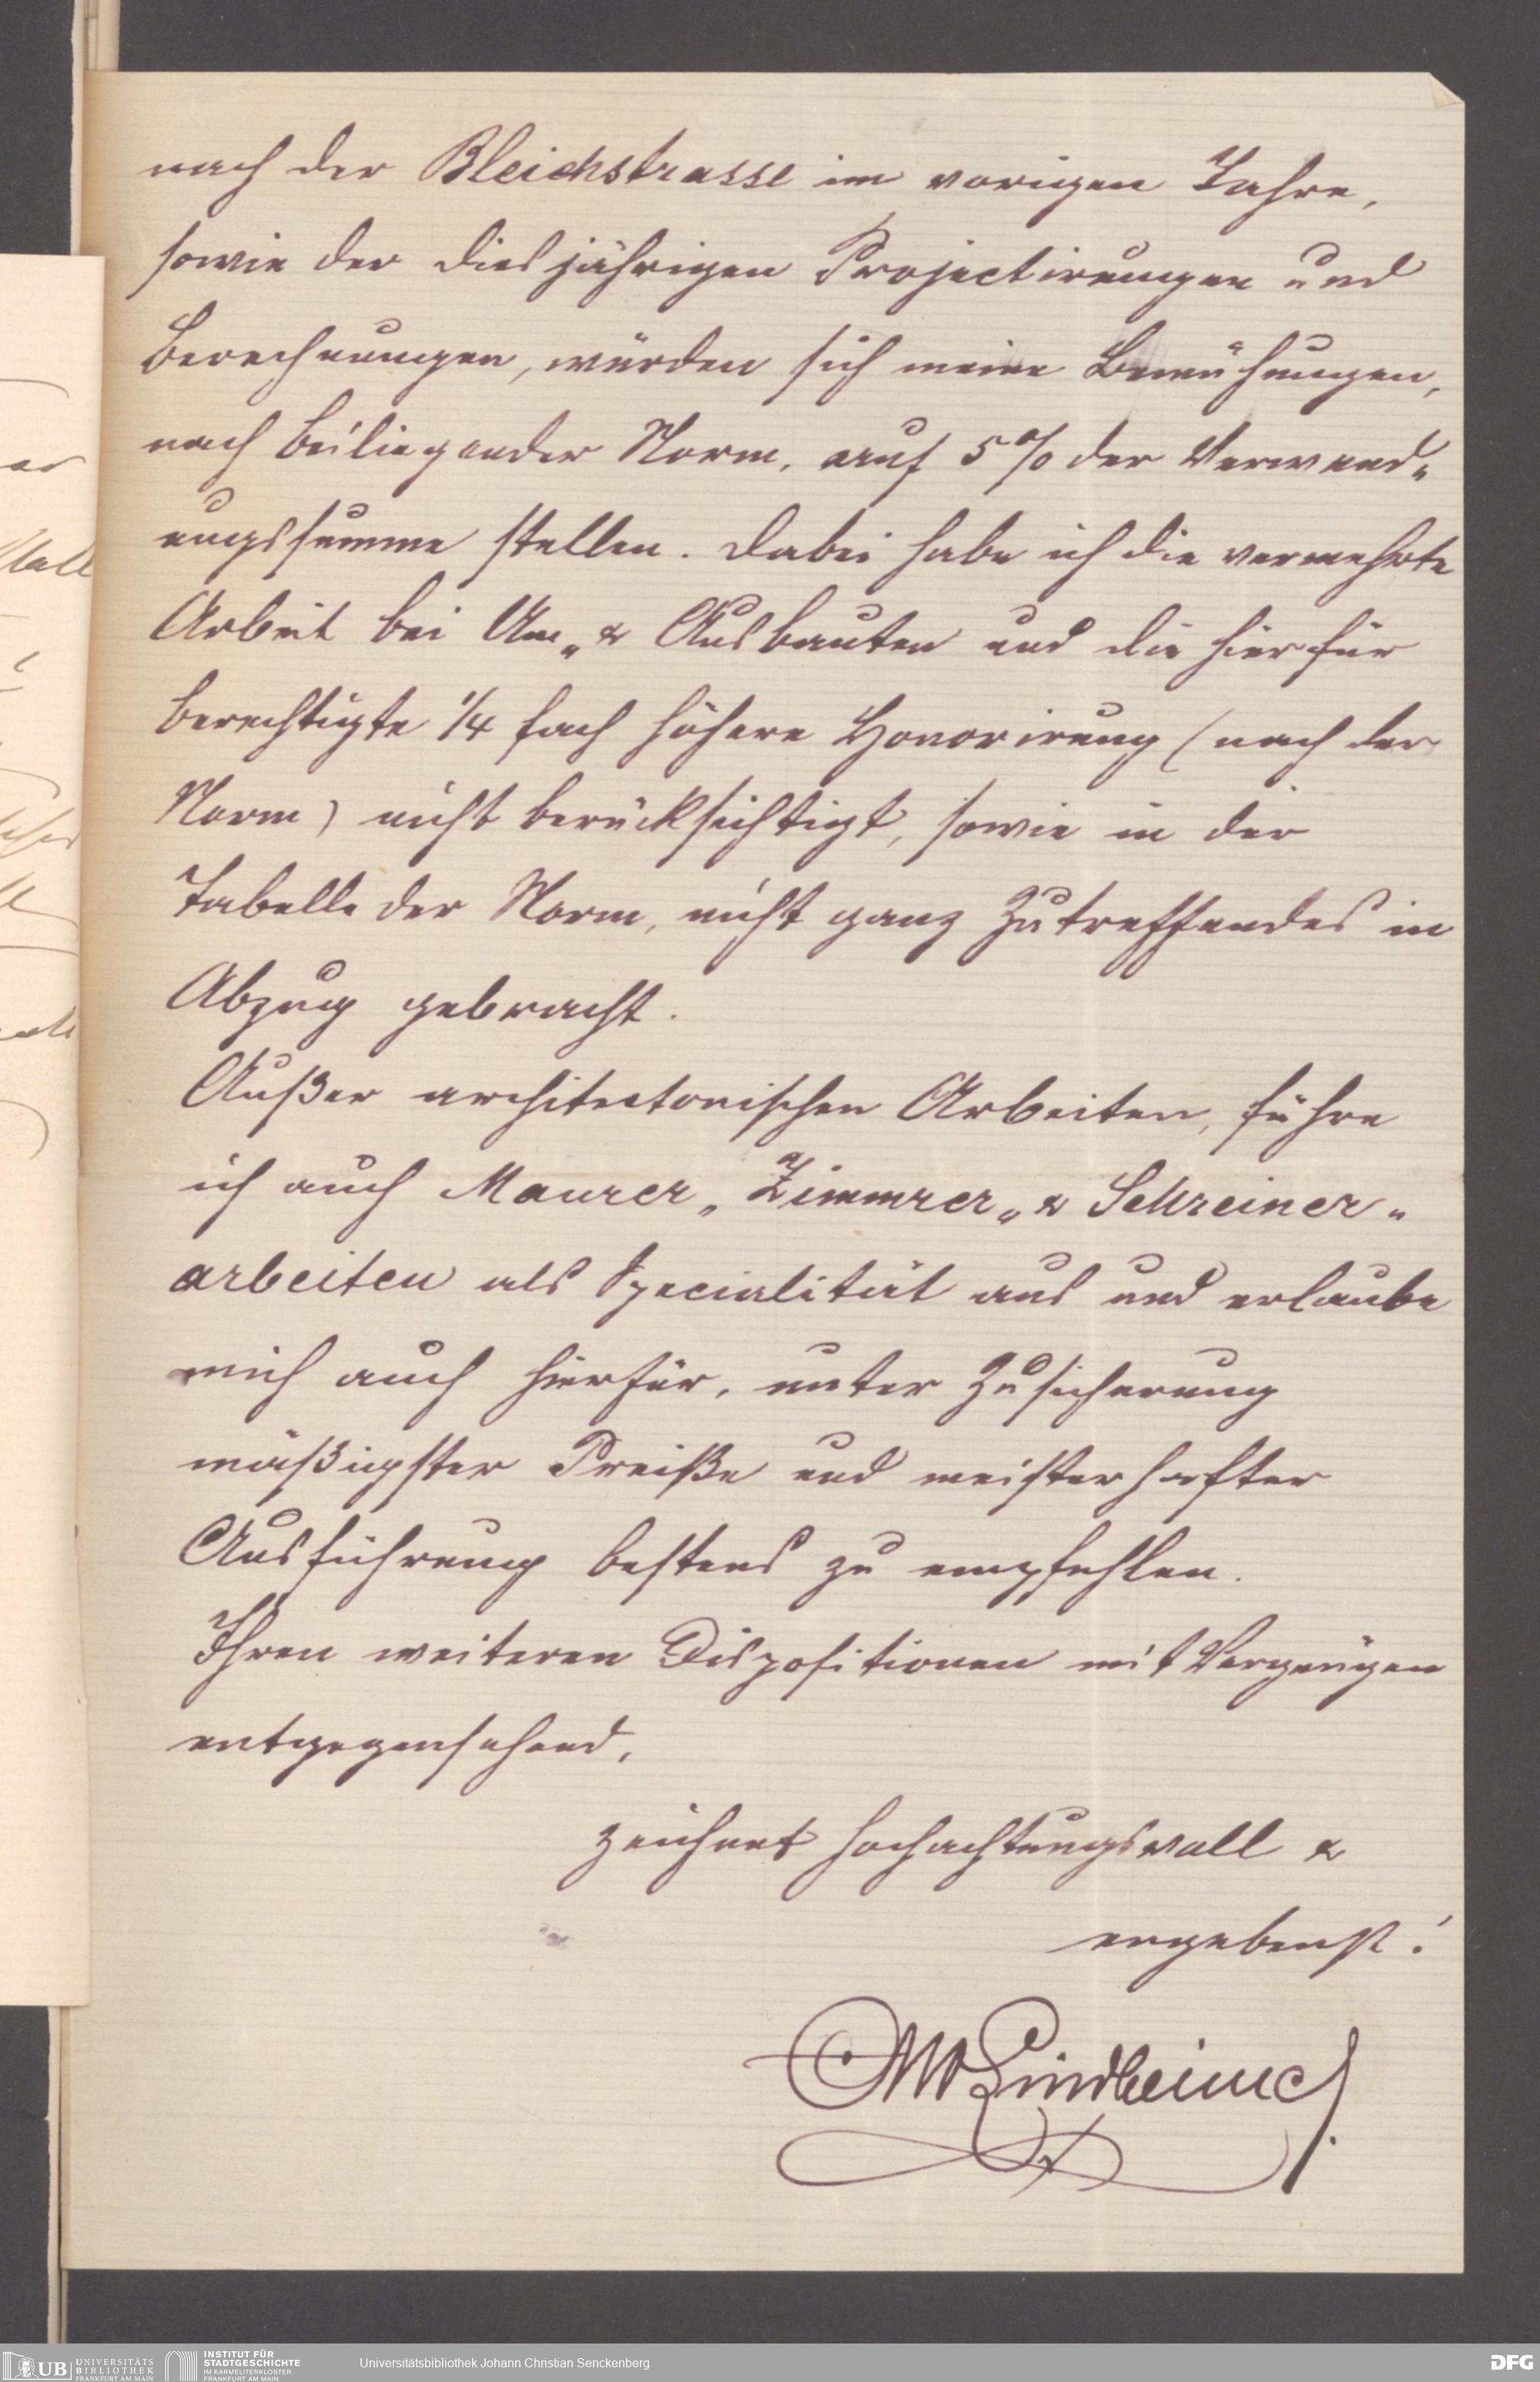 nach der Bleichstrasse im vorigen Jahre,
sowie der diesjährigen Projectirungen und
Berechnungen, würden sich meine Bemühungen,
nach beiliegender Norm, auf 5% der Verwend„
ungssumme stellen. Dabei habe ich die vermehrte
Arbeit bei Um„ & Ausbauten und die hierfür
berechtigte 1/4 fach höhere Honorirung (nach der
Norm) nicht berücksichtigt, sowie in der
Tabelle der Norm, nicht ganz Zutreffendes in
Abzug gebracht.
Außer architectonischen Arbeiten, führe
ich auch Maurer„ Zimmrer„ & Schreiner„
arbeiten als Specialität aus und erlaube
mich auch hierfür, unter Zusicherung
mäßigster Preiße und meisterhafter
Ausführung bestens zu empfehlen.
Ihren weiteren Dispositionen mit Vergnügen
entgegensehend,
zeichnet hochachtungsvoll &
ergebenst!
Lindheimer
UB UNIVERSITÄTS
BIBLIOTHEK
FRANKFURT AM MAIN
INSTITUT FÜR
STADTGESCHICHTE
IM KARMELITERKLOSTER
FRANKFURT AM MAIN
Universitätsbibliothek Johann Christian Senckenberg
DFG